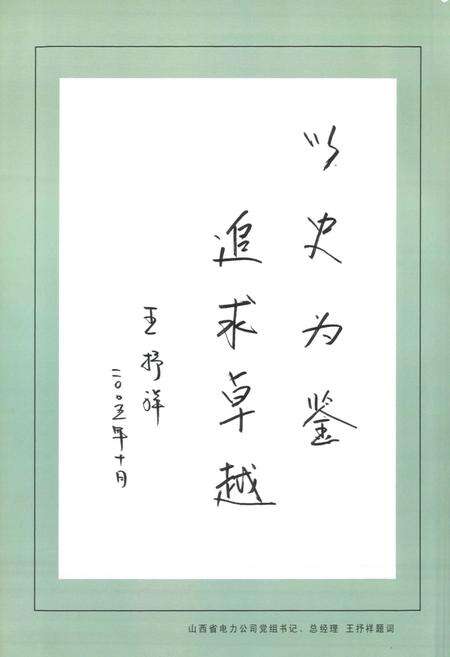 以史为鉴
追求卓越
王抒祥
二〇〇五年十月
山西省电力公司党组书记、总经理 王抒祥题词